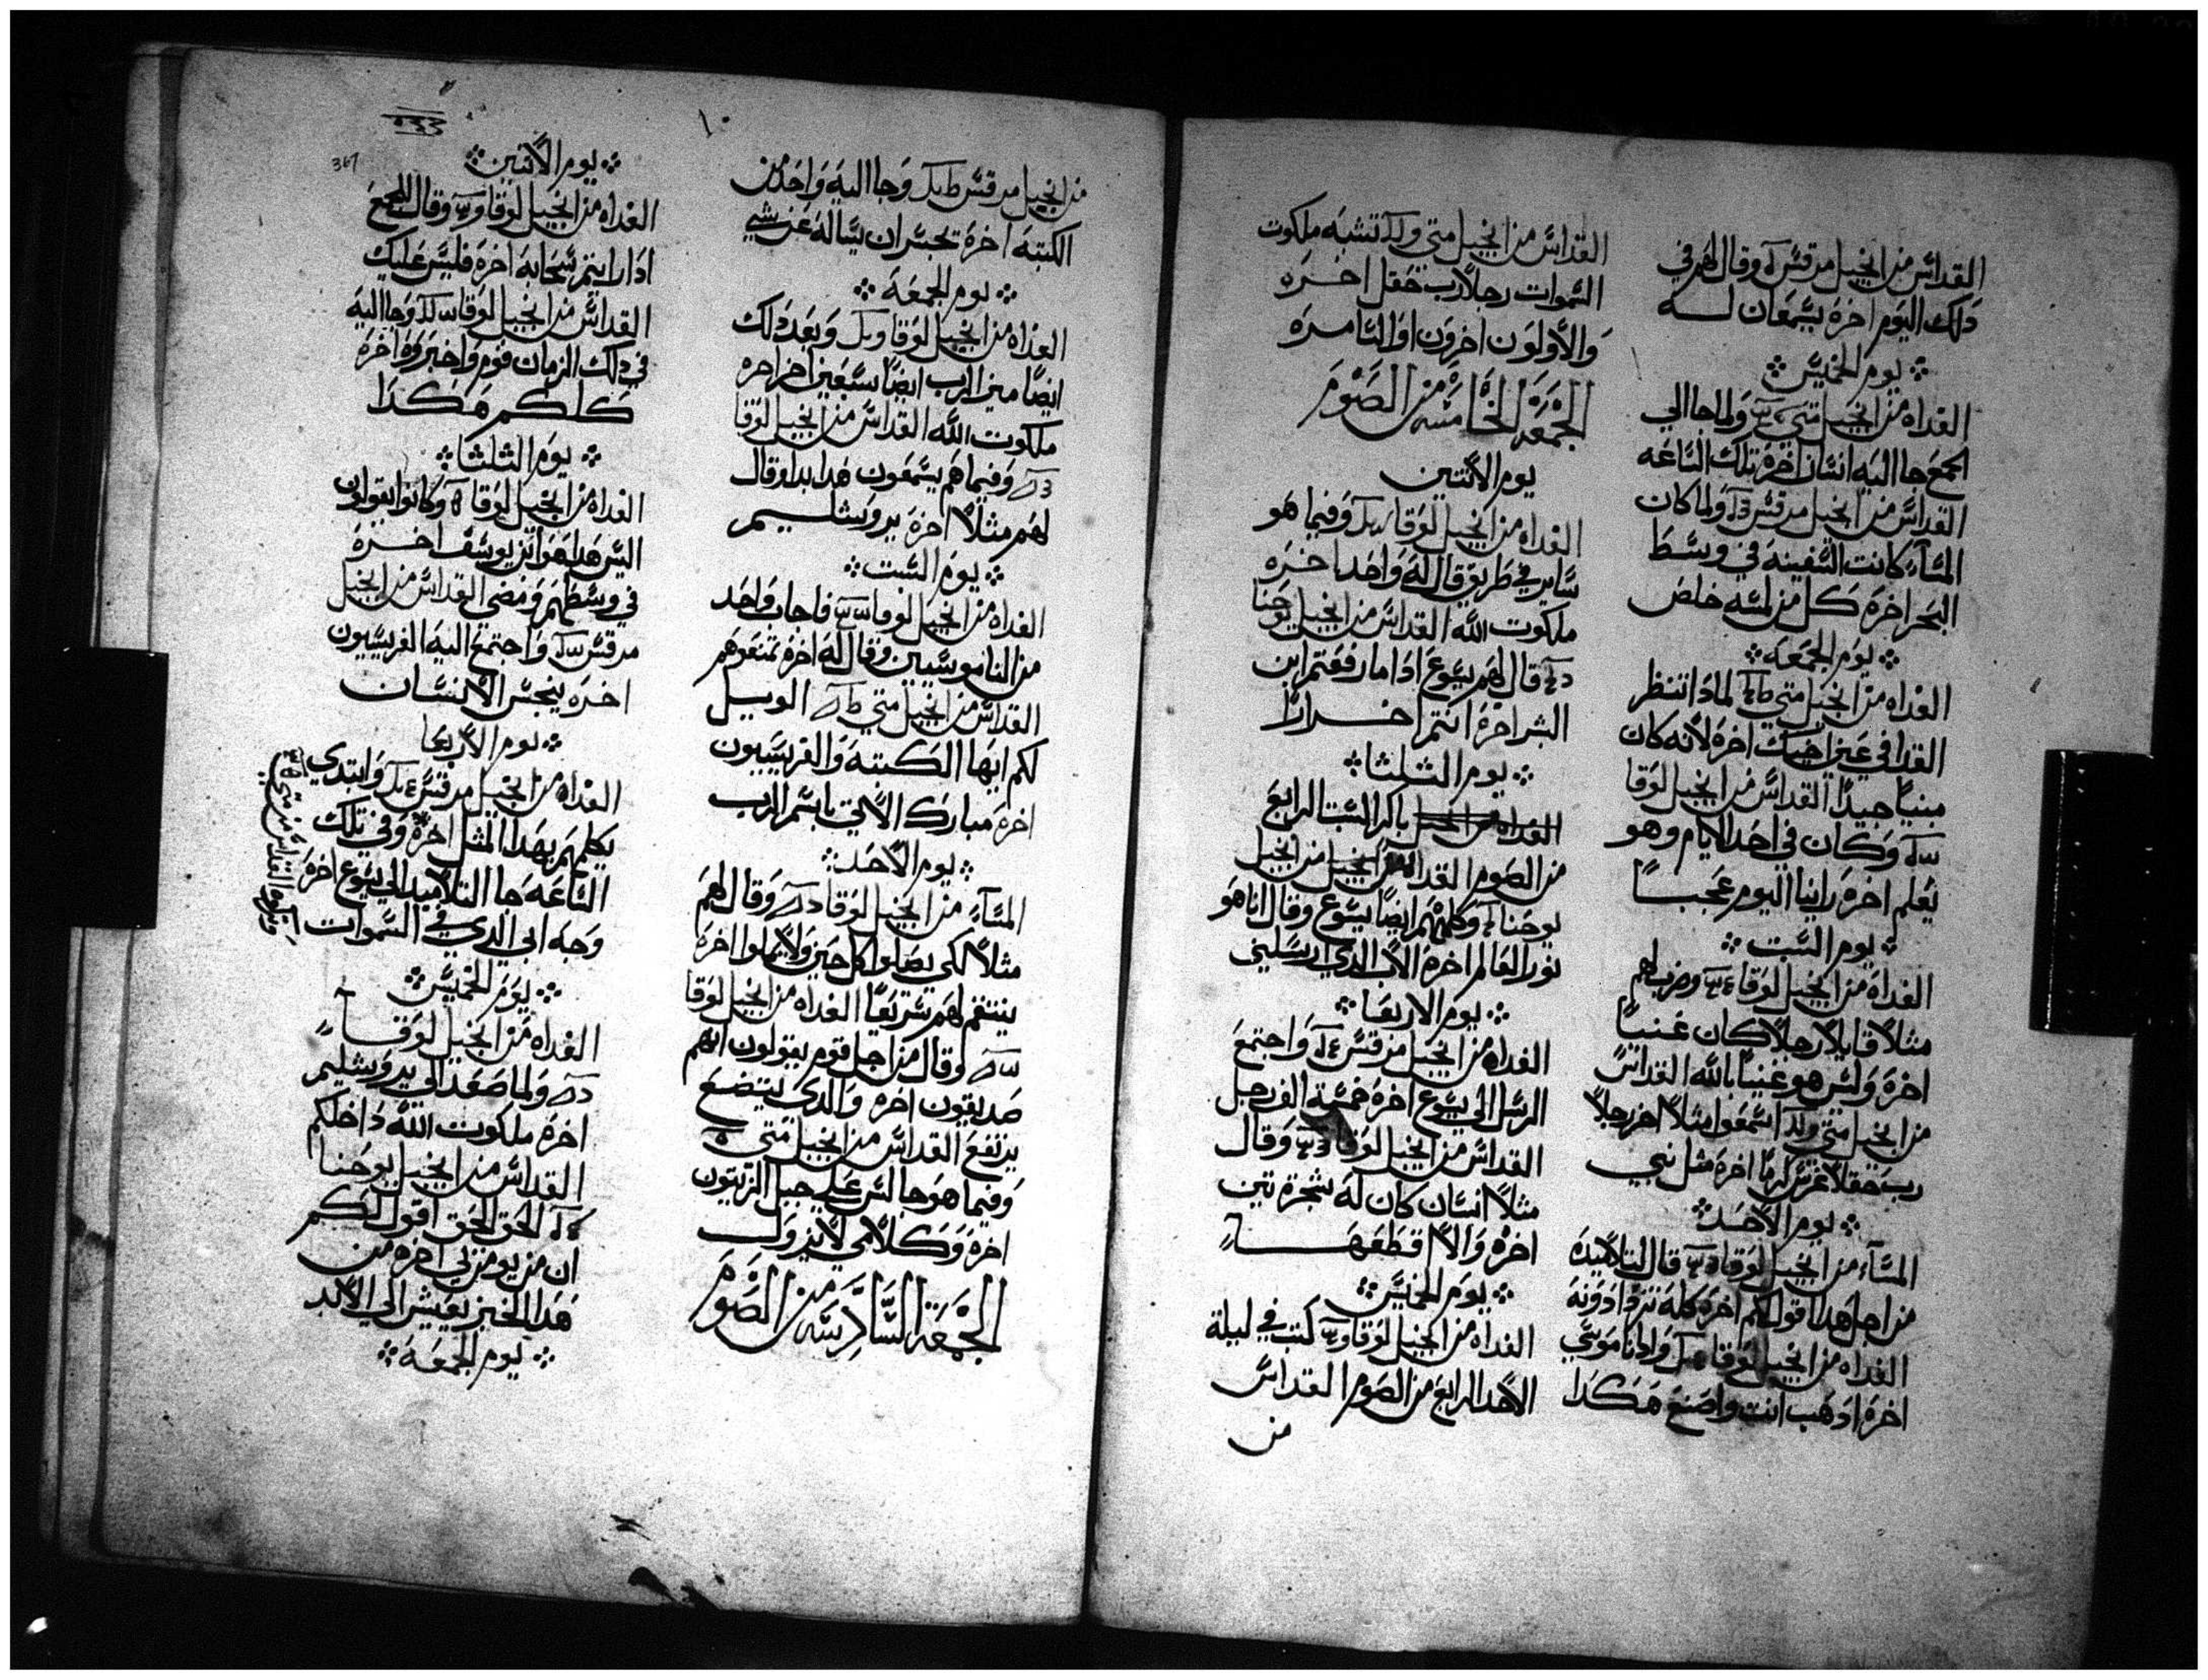 القداس من انجيل مرقس وقال لهم في
دلك اليوم اخرة يسمعان له
يوم الخميس
الغداه من انجيل متي ولما جا الي
الجمع جا اليه انسان اخرة تلك الساعه
القداس من انجيل مرقس ولما كان
المساء كانت السفينه في وسط
البحر اخرة كل من لمسه خلص
يوم الجمعه
الغداه من انجيل متي لمادا تنظر
القدا في عين اخيك اخرة لانه كان
مبنياً جيداً القداس من انجيل لوقا
وكان في احد الايام وهو
يعلم اخرة راينا اليوم عجباً
يوم السبت
الغداه من انجيل لوقا وضرب لهم
مثلاً قايلاً رجلاً كان غنياً
اخرة وليس هو غنياً بالله القداس
من انجيل متي اسمعوا مثلاً اخر رجلاً
رب حقلاً غرس كرماً اخرة مثل نبي
يوم الاحد
المساء من انجيل لوقا قال لتلاميده
من اجل هدا اقول لكم اخرة كله تزدادونه
الغداه من انجيل لوقا وادا ناموسي
اخرة ادهب انت واصنع هكدا
القداس من انجيل متي تشبه ملكوت
السموات رجلاً رب حقل اخره
والاولون اخرون او التامره
الجمعه الخامسه من الصوم
يوم الاتنين
الغداه من انجيل لوقا وفيما هو
ساير في طريق قال له واحد اخره
ملكوت الله القداس من انجيل يوحنا
قال لهم يسوع ادا ما رفعتم ابن
البشر اخرة انتم احراراً
يوم الثلثا
الغداه من انجيل باكر السبت الرابع
من الصوم القداس من انجيل من انجيل
يوحنا وكلمهم ايضاً يسوع وقال انا هو
نور العالم اخرة الاب الدي ارسلني
يوم الاربعا
الغداه من انجيل مرقس واجتمع
الرسل الي يسوع اخرة خمسة الف رجل
القداس من انجيل لوقا وقال
مثلاً انسان كان له شجرة تين
اخرة والا قطعها
يوم الخميس
الغداه من انجيل لوقا كتب في ليلة
الاحد الرابع من الصوم القداس
من
١٠
من انجيل مرقس وجا اليه واحد من
الكتبه اخرة تجسر ان يساله عن شي
يوم الجمعه
الغداه من انجيل لوقا وبعد دلك
ايضاً ميز الرب ايضاً سبعين اخر اخره
ملكوت الله القداس من انجيل لوقا
وفيما هم يسمعون هدا بدا وقال
لهم مثلاً اخرة يروشليم
يوم السبت
الغداه من انجيل لوقا فاجاب واحد
من الناموسيين وقال له اخرة تمنعوهم
القداس من انجيل متي الويل
لكم ايها الكتبه والفريسيون
اخرة مبارك الاتي باسم الرب
يوم الاحد
المساء من انجيل لوقا وقال لهم
مثلاً لكي يصلوا كل حين ولا يملوا اخرة
ينتقم لهم سريعاً الغداه من انجيل لوقا
وقال من اجل قوم يقولون انهم
صديقون اخره والدي يتضع
يرتفع القداس من انجيل متي
وفيما هو جالس علي جبل الزيتون
اخرة وكلامي لا يزول
الجمعة السادسه من الصوم
367
يوم الاتنين
الغداه من انجيل لوقا وقال للجمع
ادا رايتم سحابه اخرة فليس عليك
القداس من انجيل لوقا وجا اليه
في دلك الزمان قوم واخبروه اخرة
كلكم هكدا
يوم الثلثا
الغداه من انجيل لوقا وكانوا يقولون
اليس هدا هو ابن يوسف اخره
في وسطهم ومضي القداس من انجيل
مرقس واجتمع اليه الفريسيون
اخره ينجس الانسان
يوم الاربعا
الغداه من انجيل مرقس وابتدي
يكلمهم بهدا المثل اخرة وفي تلك
الساعه جا التلاميد الي يسوع اخرة
وجه ابي الدي في السموات
يوم الخميس
الغداه من انجيل لوقا
ولما صعد الي يروشليم
اخرة ملكوت الله داخلكم
القداس من انجيل يوحنا
الحق الحق اقول لكم
ان من يومن بي اخره من
هدا الخبز يعيش الي الابد
يوم الجمعه